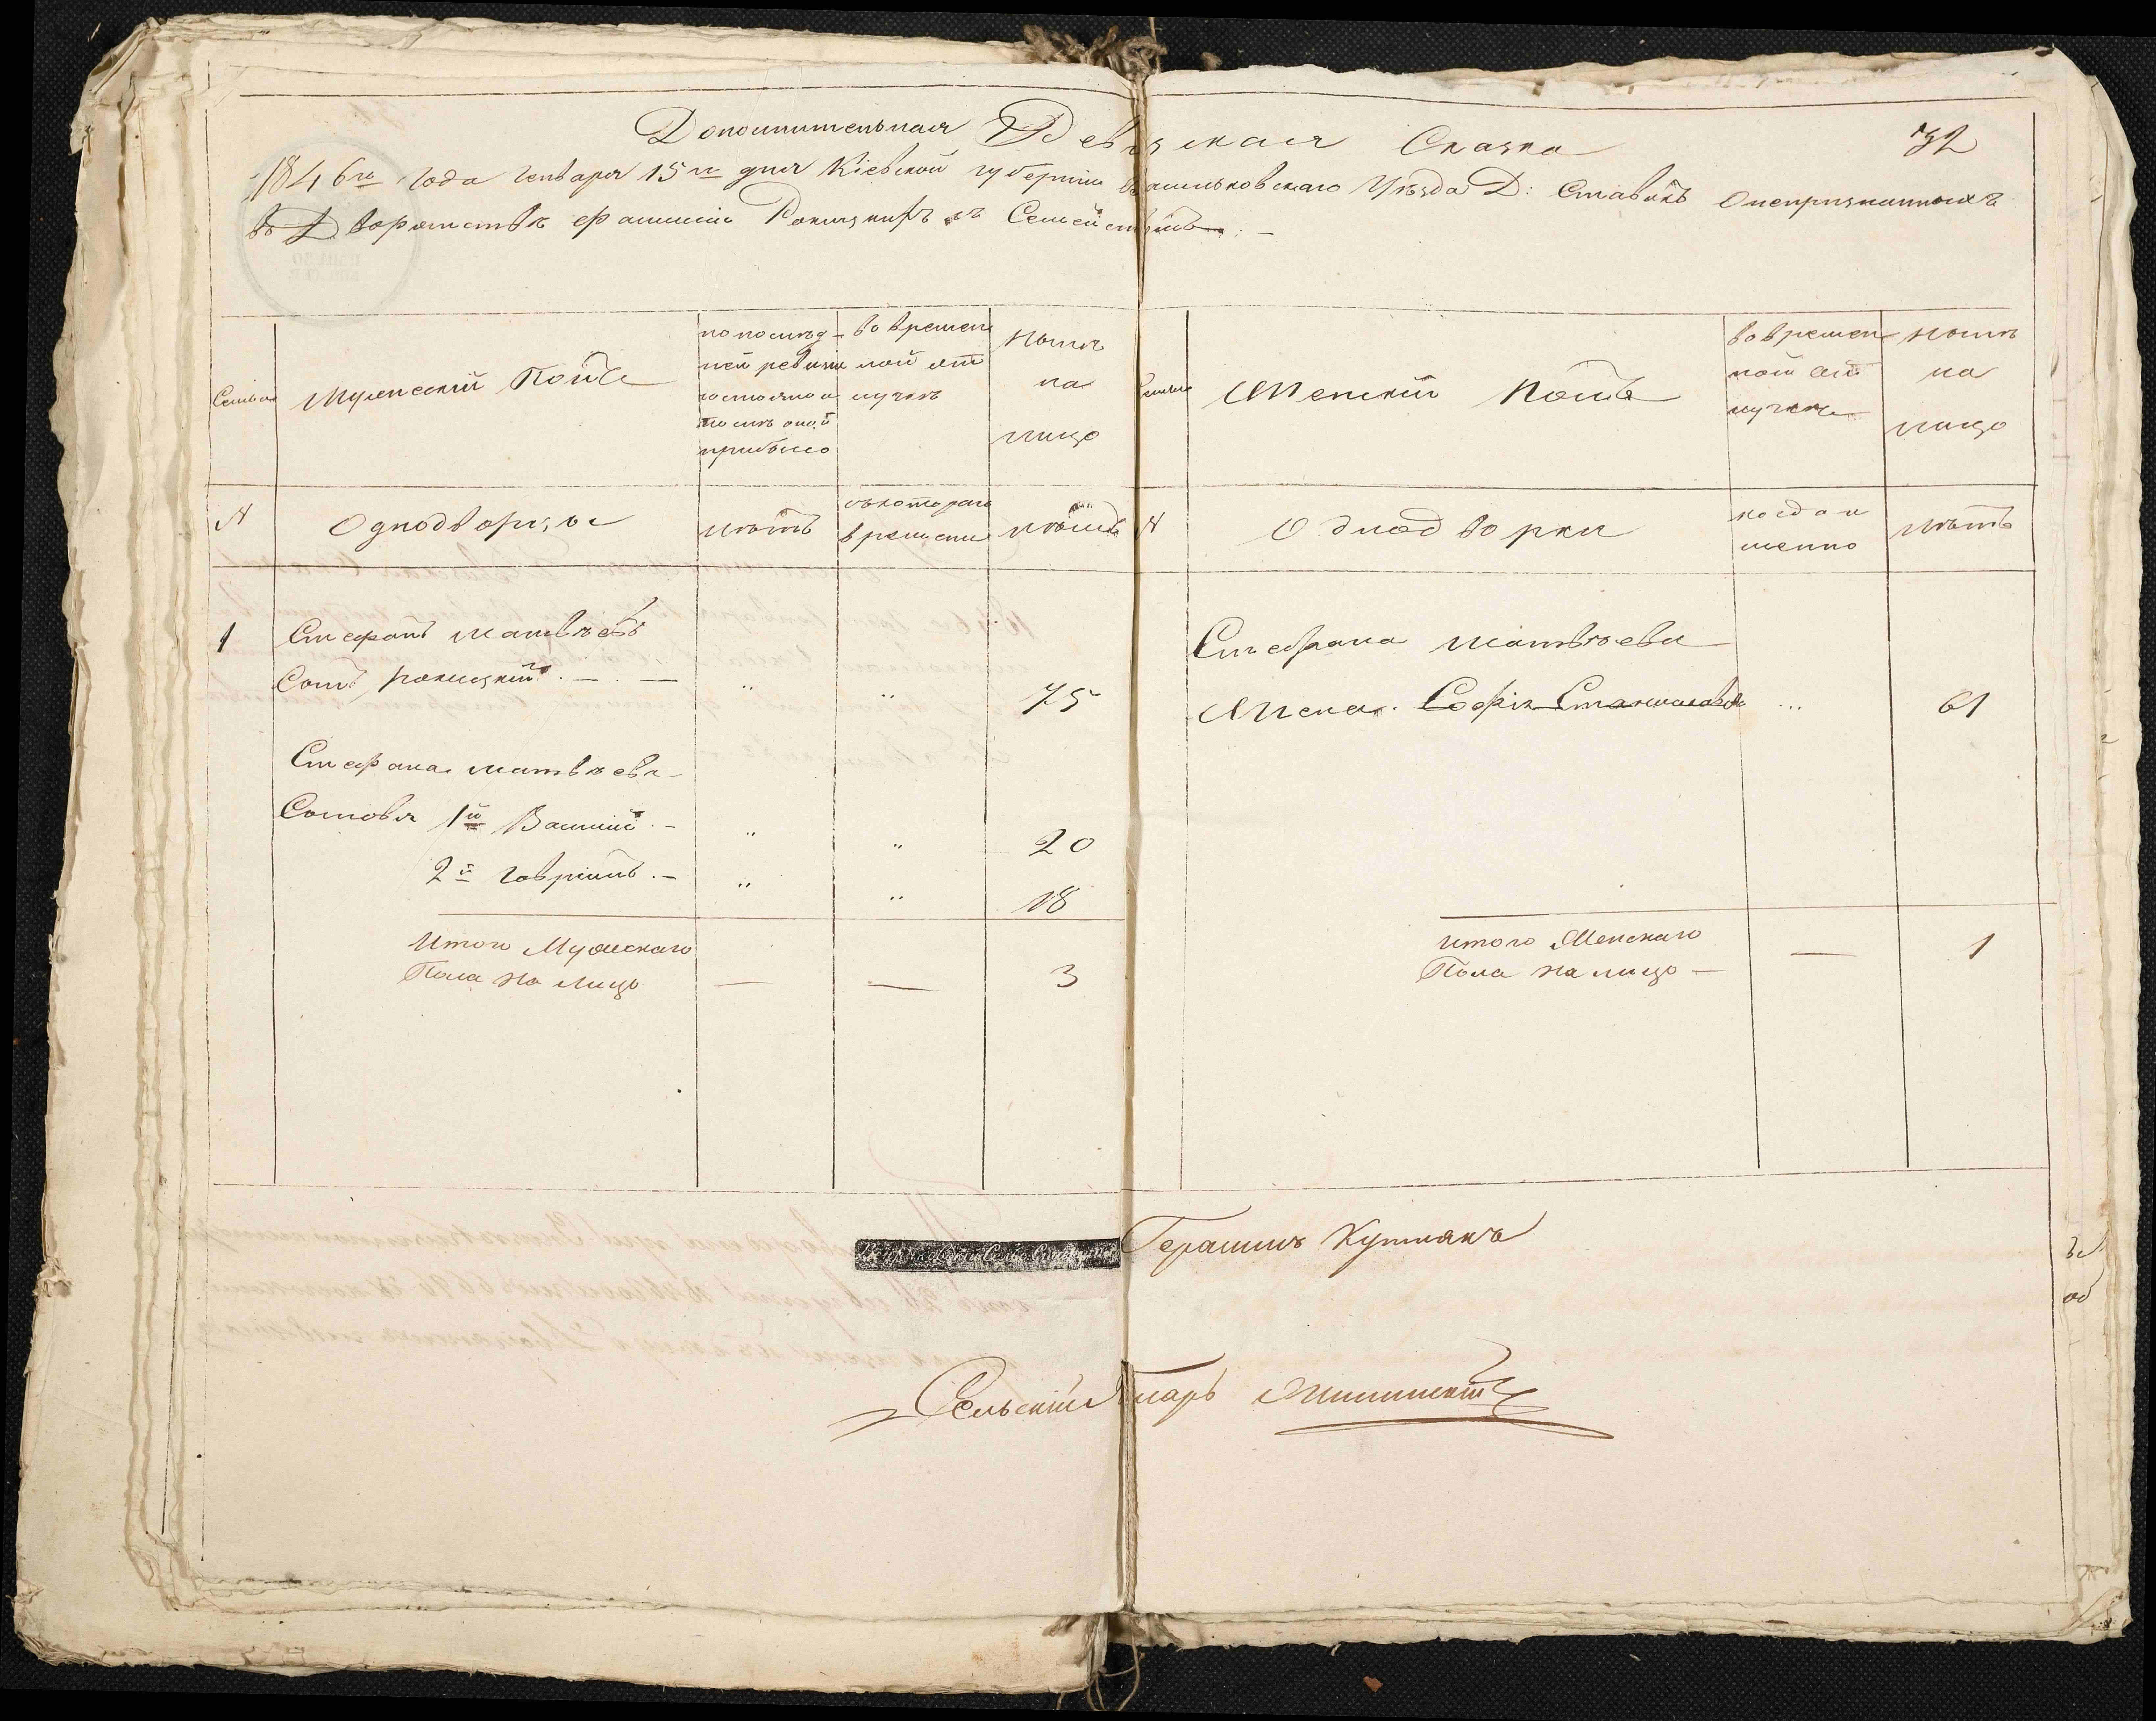 Дополнительная Ревизская Сказка
32
1846го года Генваря 15го дня Кіевской губерніи Васильковскаго Уѣзда Д: Ставокъ Онепризнанныхъ
въ Дворянствѣ фамиліи Рокицкихъ
Семья
Мужескій Полъ
по послѣд-
ней ревизіи
состояло и
послѣ оной
прибыло
во времен
ной от
лучкѣ
Нынѣ
на
лицо
Семья
Женскій Полъ
во времен
ной от
лучкѣ
Нынѣ
на
лицо
N
Однодворцы
лѣтъ
съ котораго
времени
лѣтъ
N
Однодворки
когда и
менно
лѣтъ
1
Стефанъ Матвѣевъ
Сынъ Рокицкій . — . —
"
"
75
Стефана Матвѣева
Жена. Софія
...
61
Стефана Матвѣева
Сыновья 1й Василій . –
"
"
20
2й Гавріилъ . –
"
"
18
Итого Мужескаго
Пола на лицо
—
—
3
Итого Женскаго
Пола на лицо —
—
1
Герасимъ
Сельскій Писарь